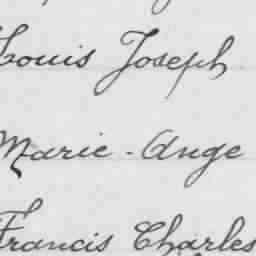 Louis Joseph
Marie-Ange
Francis Charles